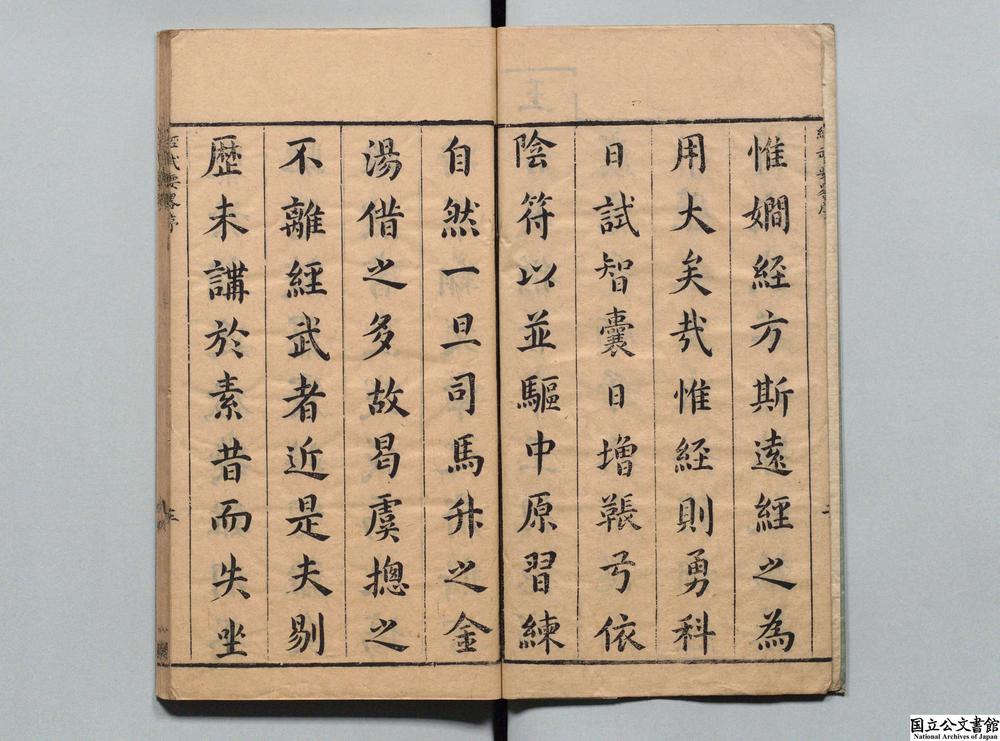 惟嫺經方斯遠經之為
用大矣㢤惟經則勇科
日試智囊日增韔弓依
陰符以並驅中原習練
自然一旦司馬升之金
湯借之多故曷虞摠之
不離經武者近是夫剔
歷未講於素昔而失坐
經武要畧序
国立公文書館
National Archives of Japan